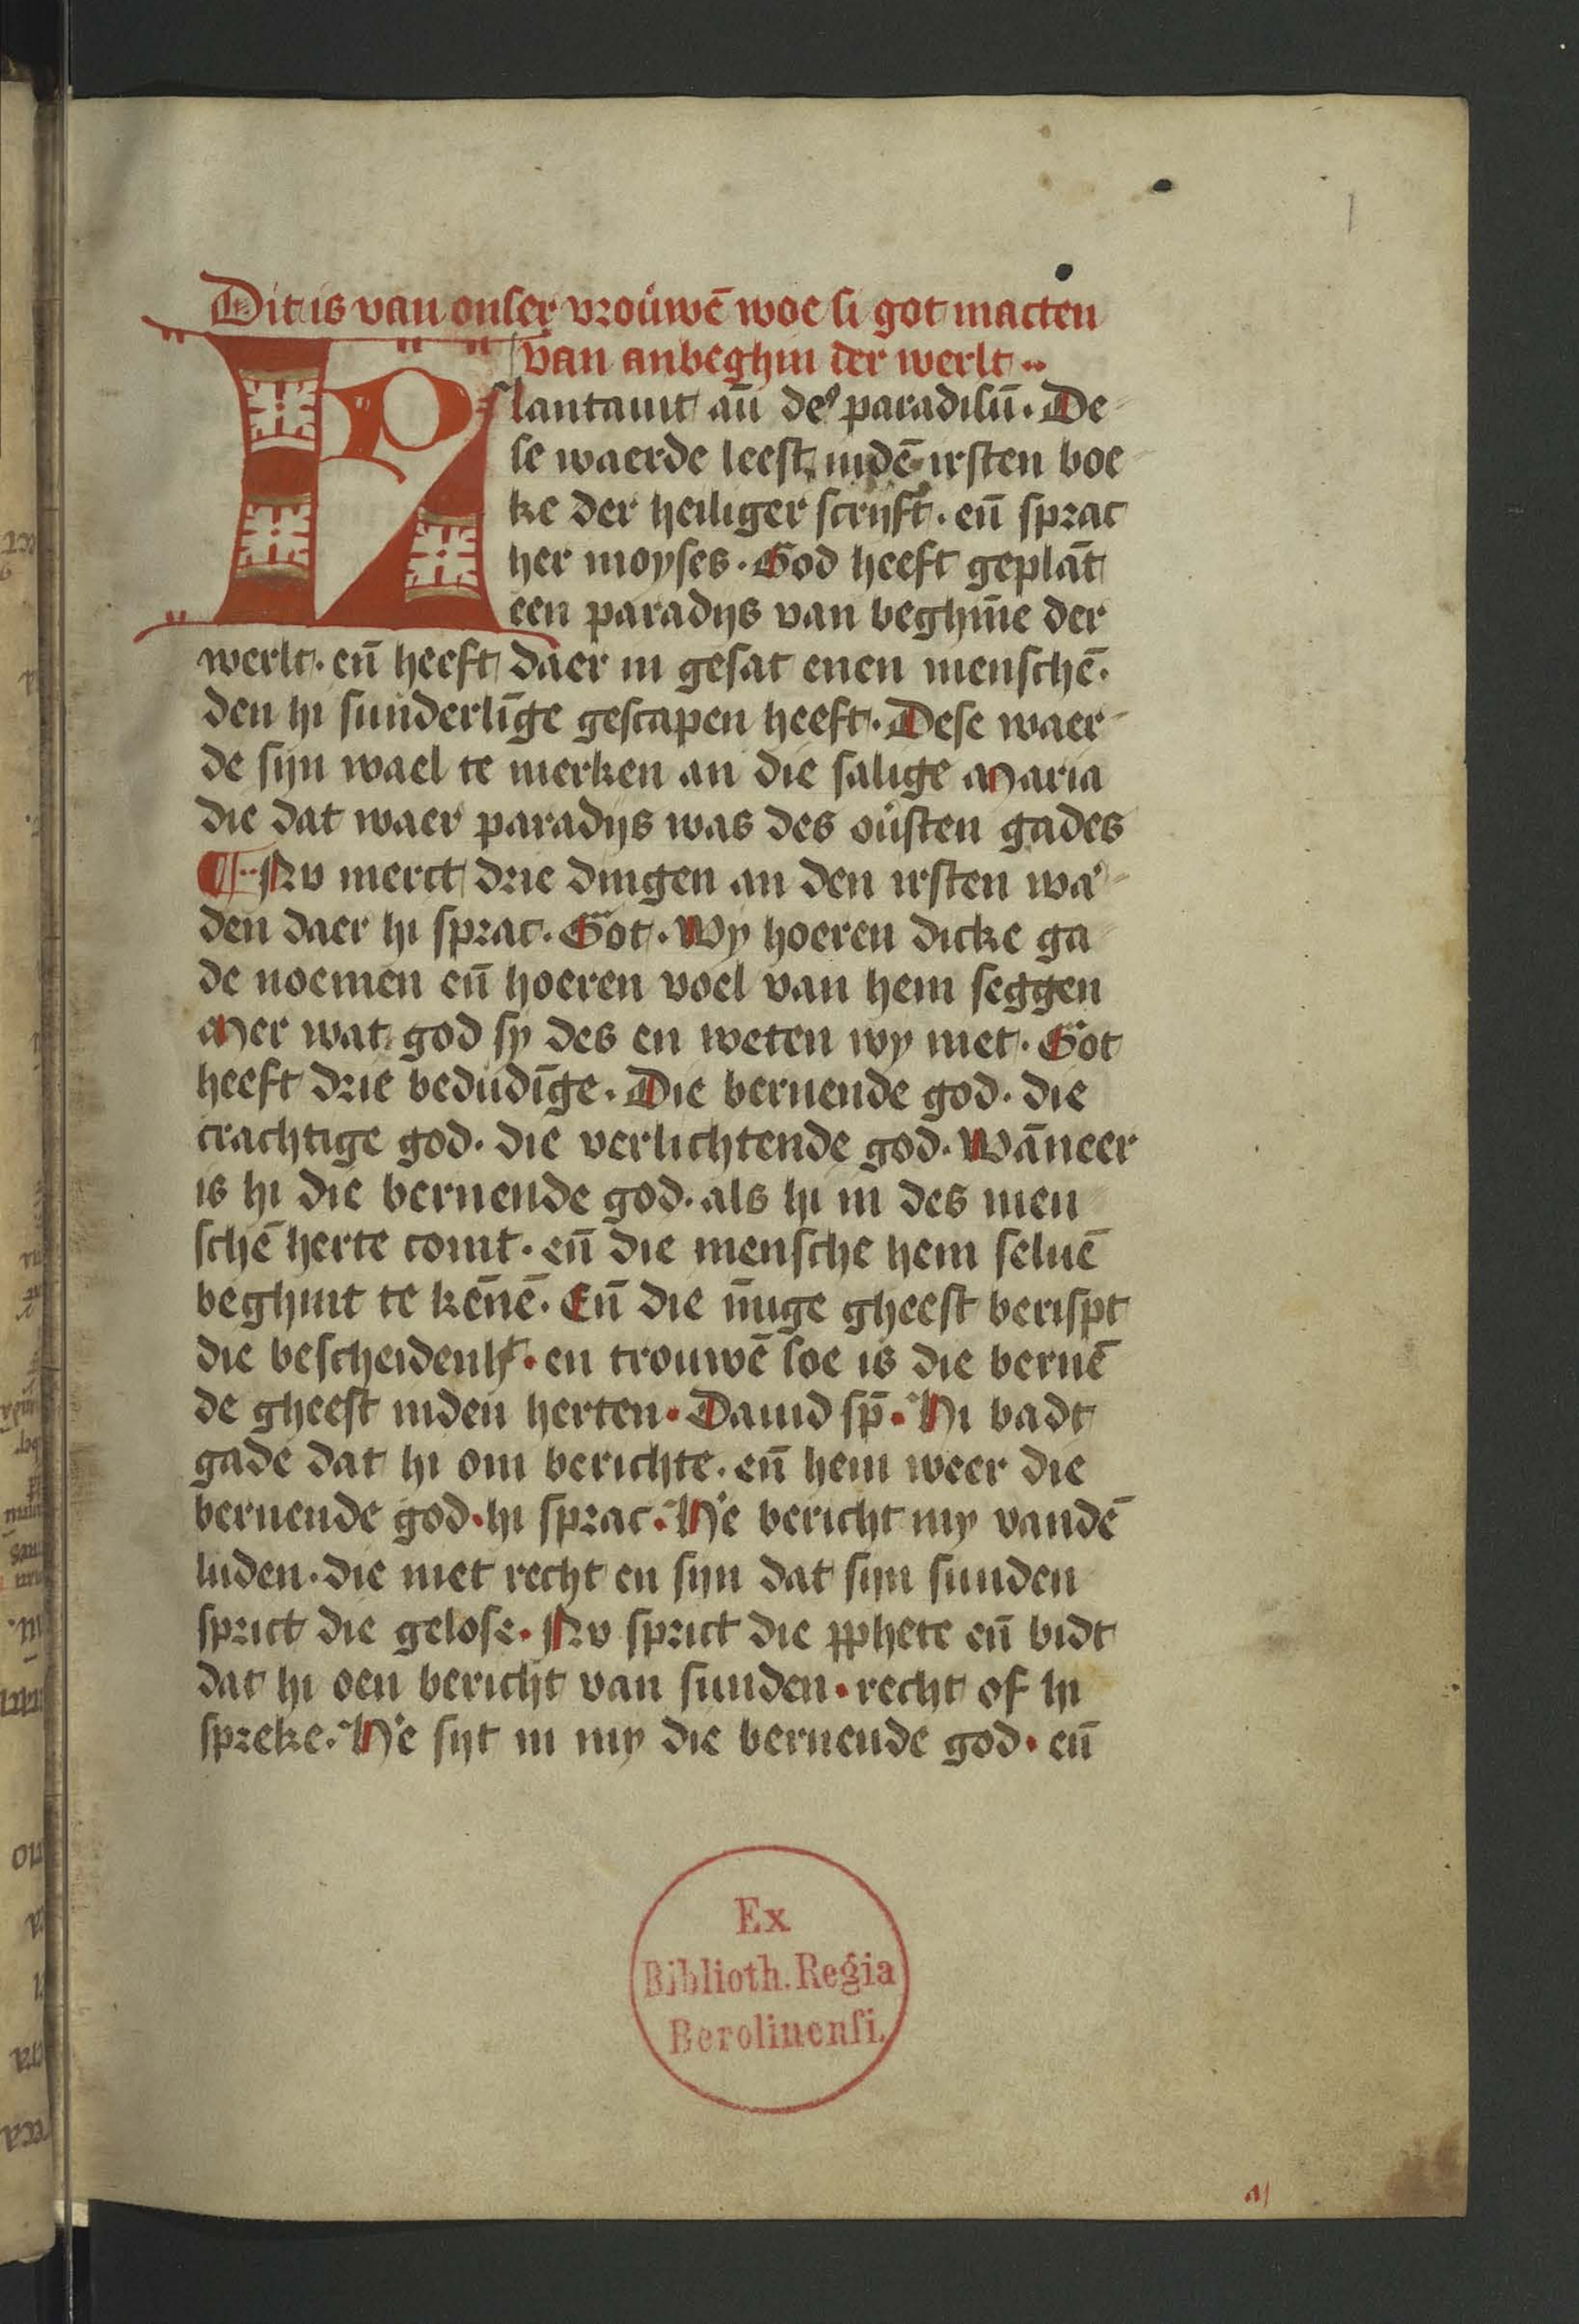 1
Dit is van onser vrouwē woe si got macten
van anbeghin der werlt
Plantauit aū deꝰ paradisū. De
se waerde leest indē irsten boe
ke der heiliger scrijft. eñ sprac
her moyses. God heeft geplāt
een paradijs van beghīne der
werlt. eñ heeft daer in gesat enen menschē.
den hi sunderlīge gescapen heeft. Dese waer
de sijn wael te merken an die salige Maria
die dat waer paradijs was des ouersten gades
¶ Nv merct drie dingen an den irsten wa
den daer hi sprac. Got. Wy hoeren dicke ga
de noemen eñ hoeren voel van hem seggen
Mer wat god sy des en weten wy niet. Got
heeft drie bedudīge. Die bernende god. die
crachtige god. die verlichtende god. Wāneer
is hi die bernende god. als hi in des men
schē herte comt. eñ die mensche hem seluē
beghint te kēnē. Eñ die īnige gheest berispt
die bescheidenh̄t. en trouwē soe is die bernē
de gheest inden herten. Dauid sp̄. Hi badt
gade dat hi om berichte. eñ hem weer die
bernende god. hi sprac. He bericht my vandē
luden. die niet recht en sijn dat sijn sunden
sprict die gelose. Nv sprict die ꝓphete eñ bidt
dat hi oen bericht van sunden. recht of hi
spreke. He sijt in my die bernende god. eñ
Ex
Biblioth. Regia
Berolinensi.